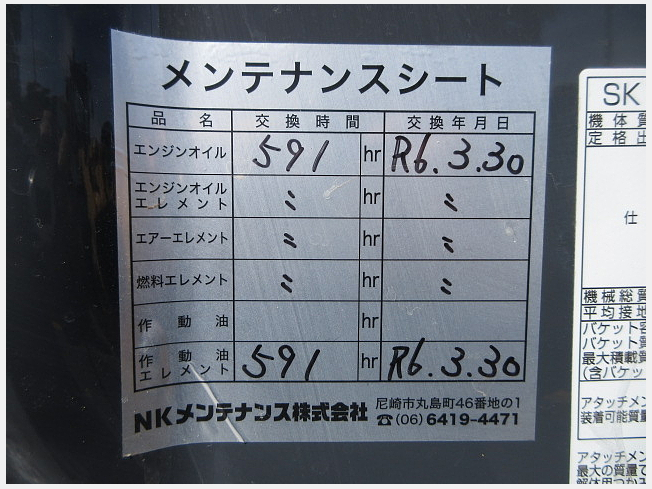 メンテナンスシート
品名 交換時間 交換年月日
エンジンオイル 591 hr R6.3.30
エンジンオイル
エレメント 〃 hr 〃
エアーエレメント 〃 hr 〃
燃料エレメント 〃 hr 〃
作動油 hr
作動油
エレメント 591 hr R6.3.30
NKメンテナンス株式会社 尼崎市丸島町46番地の1
☎(06)6419-4471
SK
機体質
定格出
仕
機械総質
平均接地
バケット容
バケット質
最大積載質
(含バケッ
アタッチメン
装着可能質量
アタッチメン
最大の質量で
解体用つかみ